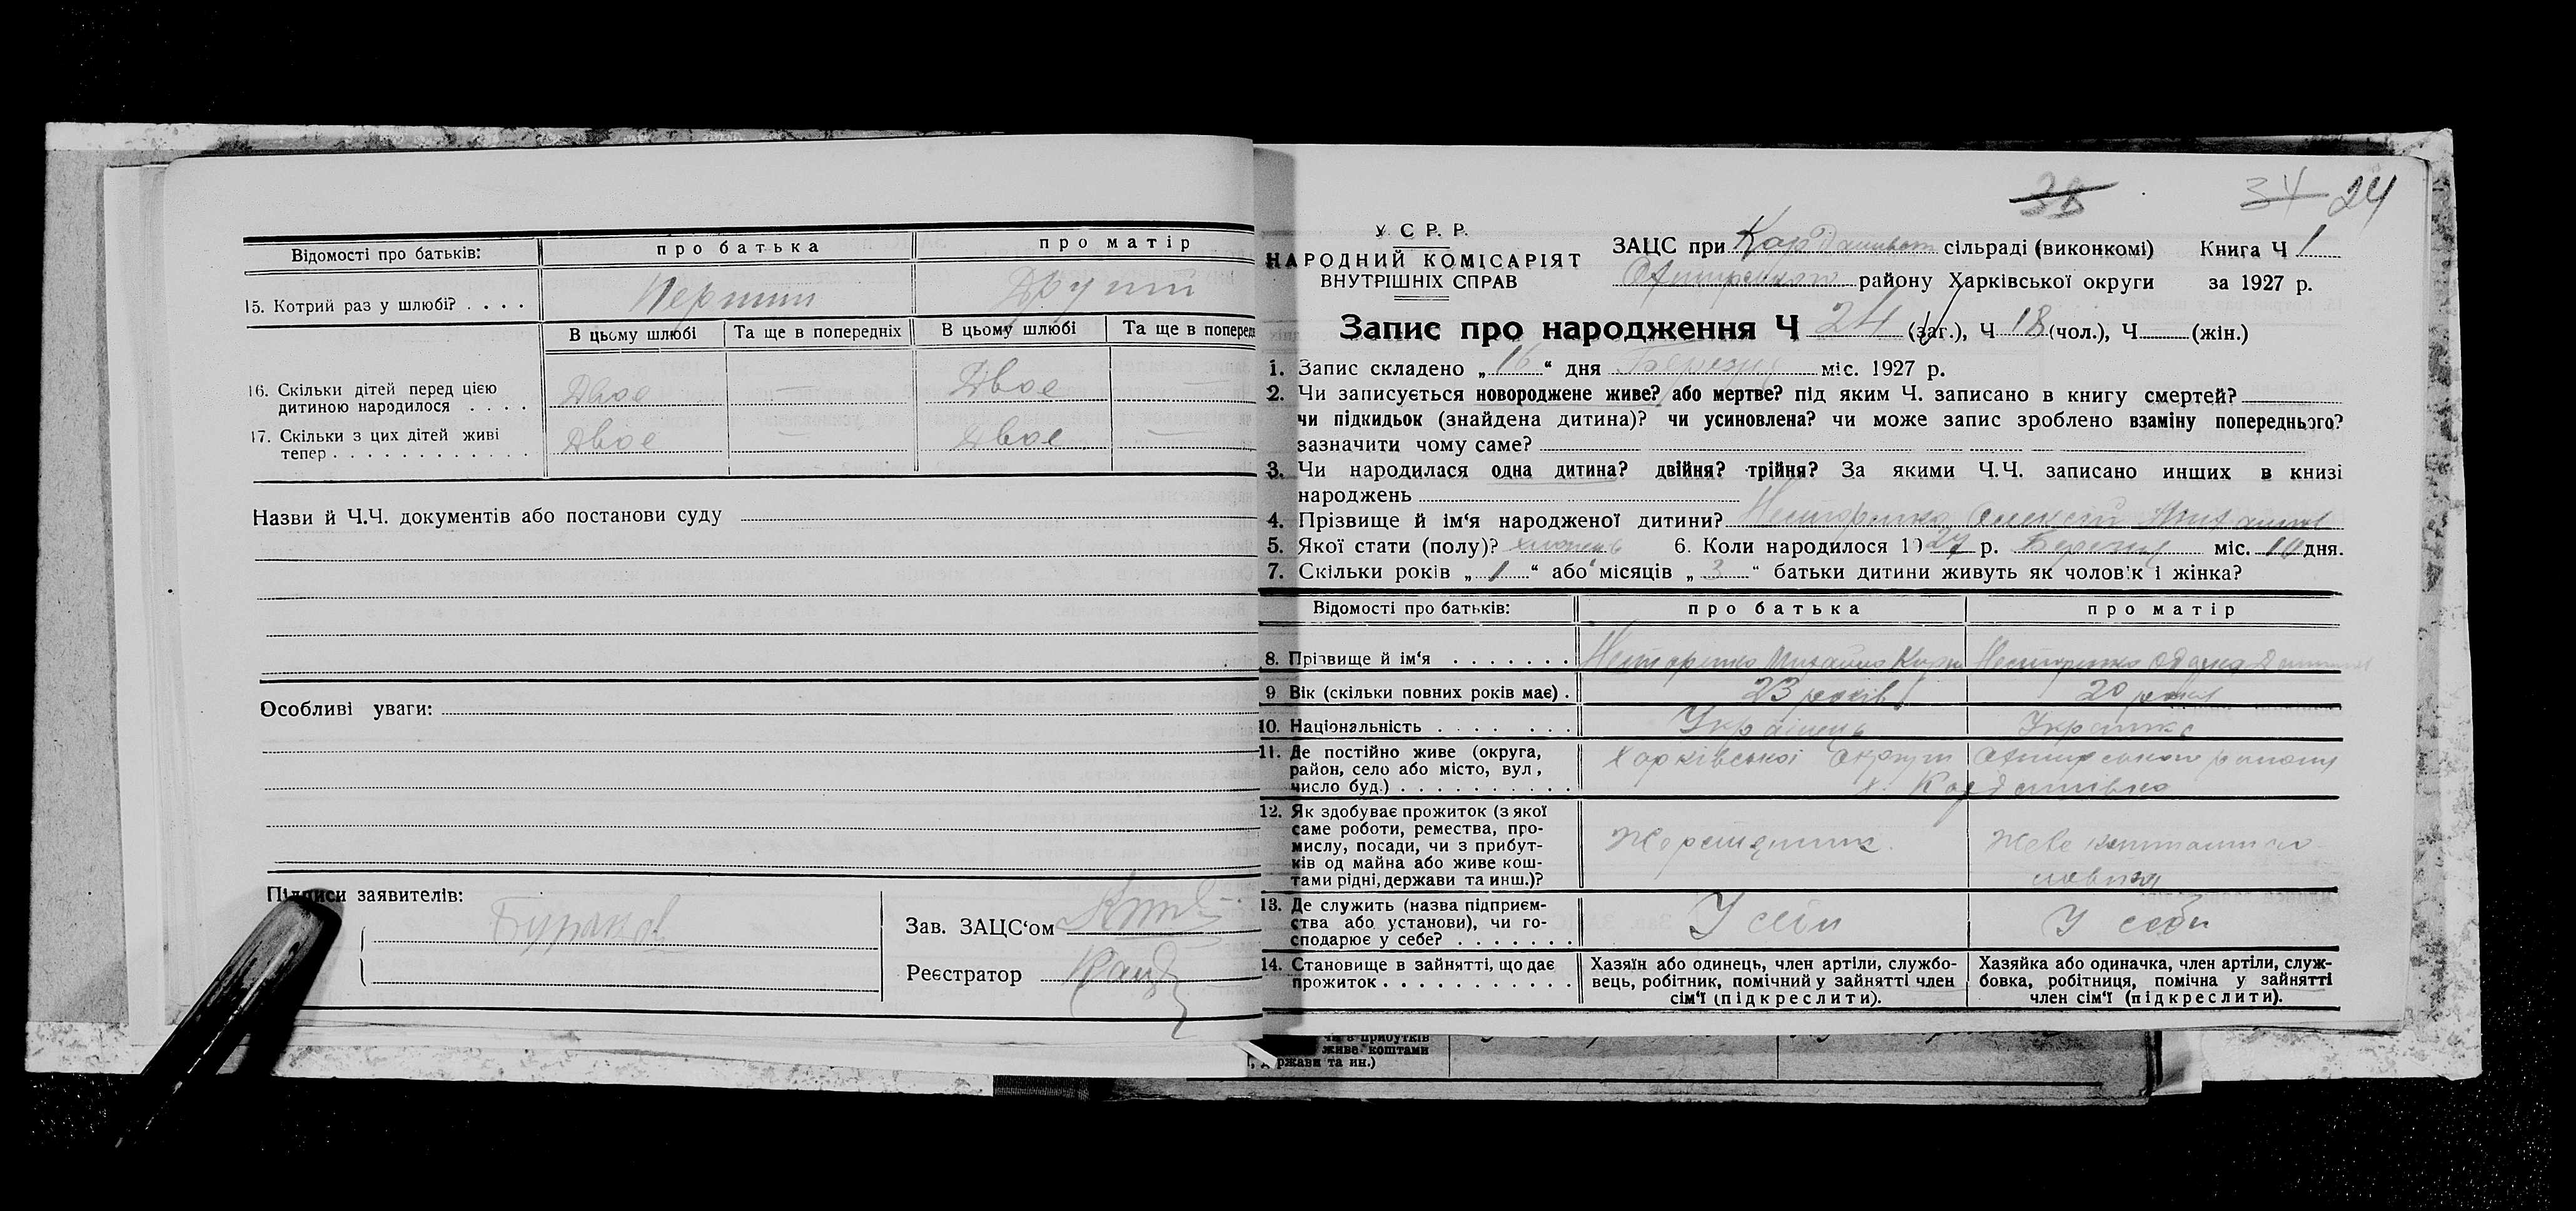 Відомості про батьків: про батька про матір
15. Котрий раз у шлюбі? . . . . Перший Другий
В цьому шлюбі Та ще в попередніх В цьому шлюбі Та ще в поперед
16. Скільки дітей перед цією Двое — Двое —
дитиною народилося . . . .
17. Скільки з цих дітей живі Двое — Двое —
тепер . . . . . . . . . . . .
Назви й Ч.Ч. документів або постанови суду
Особливі уваги:
Підписи заявителів:
Бураков
Зав. ЗАЦС‘ом
Реєстратор
38 34 24
У. С. Р. Р.
НАРОДНИЙ КОМІСАРІЯТ
ВНУТРІШНІХ СПРАВ
ЗАЦС при сільраді (виконкомі) Книга Ч 1
району Харківської округи за 1927 р.
Запис про народження Ч 24 (заг.), Ч 18 (чол.), Ч (жін.)
1. Запис складено „ 16 “ дня Березня міс. 1927 р.
2. Чи записується новороджене живе? або мертве? під яким Ч. записано в книгу смертей?
чи підкидьок (знайдена дитина)? чи усиновлена? чи може запис зроблено взаміну попереднього?
зазначити чому саме?
3. Чи народилася одна дитина? двійня? трійня? За якими Ч.Ч. записано инших в книзі
народжень
4. Прізвище й ім‘я народженої дитини? Нестеренко Олексій
5. Якої стати (полу)? хлопець 6. Коли народилося 1927 р. Березня міс. дня.
7. Скільки років „ 1 “ або місяців „ 3 “ батьки дитини живуть як чоловік і жінка?
Відомості про батьків: про батька про матір
8. Прізвище й ім‘я . . . . . . . Нестеренко Михайло Нестеренко
9 Вік (скільки повних років має) . 23 років 20 років
10. Національність . . . . . . . Українець Українка
11. Де постійно живе (округа, Харківської Округи району
район, село або місто, вул, х. Кардашівка
число буд.) . . . . . . . . . .
12. Як здобуває прожиток (з якої
саме роботи, ремества, про-
мислу, посади, чи з прибут-
ків од майна або живе кош-
тами рідні, держави та инш.)?
13. Де служить (назва підприєм- У себи У себи
ства або установи), чи го-
сподарює у себе? . . . . . . .
14. Становище в зайнятті, що дає Хазяїн або одинець, член артіли, службо- Хазяйка або одиначка, член артіли, служ-
прожиток . . . . . . . . . . . вець, робітник, помічний у зайнятті член бовка, робітниця, помічна у зайнятті
сім‘ї (підкреслити). член сім‘ї (підкреслити).
чи з прибутків
живе коштами
держави та ин.)